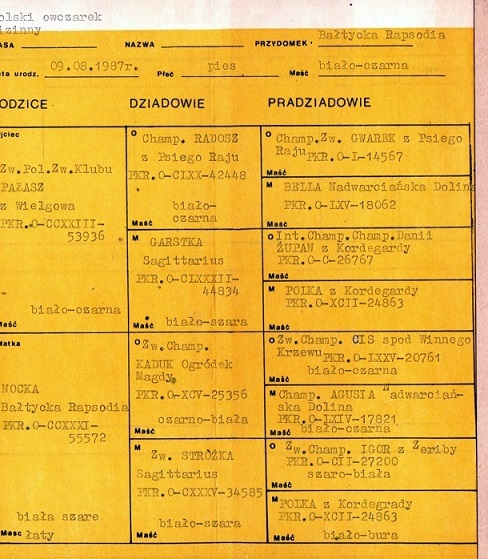 olski owczarek
izinny
ASA NAZWA PRZYDOMEK Bałtycka Rapsodia
ta urodz. 09.08.1987r. Płeć pies Maść biało-czarna
ODZICE DZIADOWIE PRADZIADOWIE
jciec
Zw.Pol.Zw.Klubu
PAŁASZ
z Wielgowa
PKR.O-CCXXIII-
53936
biało-czarna
Maść
Matka
NOCKA
Bałtycka Rapsodia
PKR.O-CCXXXI-
55572
biała szare
Masc łaty
O Champ. RADOSZ
z Psiego Raju
PKR.O-CLXX-42448
biało-
Maść czarna
M GARSTKA
Sagittarius
PKR.O-CLXXXII-
44834
Maść biało-szara
O Zw.Champ.
KADUK Ogródek
Magdy
PKR.O-XCV-25356
czarno-biała
Maść
M Zw. STRÓŻKA
Sagittarius
PKR.O-CXXXV-34585
biało-szara
Maść
O Champ.Zw. GWAREK z Psiego
Raju PKR.O-L-14567
Maść
M BELLA Nadwarciańska Dolin
PKR.O-LXV-18062
Maść
O Int.Champ.Champ.Danii
ŻUPAN z Kordegardy
PKR.O-C-26767
Maść
M POLKA z Kordegardy
PKR.O-XCII-24863
Maść
O Zw.Champ. CIS spod Winnego
Krzewu PKR.O-LXXV-20761
biało-czarna
Maść
M Champ. AGUSIA Nadwarciań-
ska Dolina
PKR.O-LXIV-17821
Maść biało-czarna
O Zw.Champ. IGOR z Zeriby
PKR.O-CII-27200
szaro-biała
Maść
M POLKA z Kordegrady
PKR.O-XCII-24863
Maść biało-bura